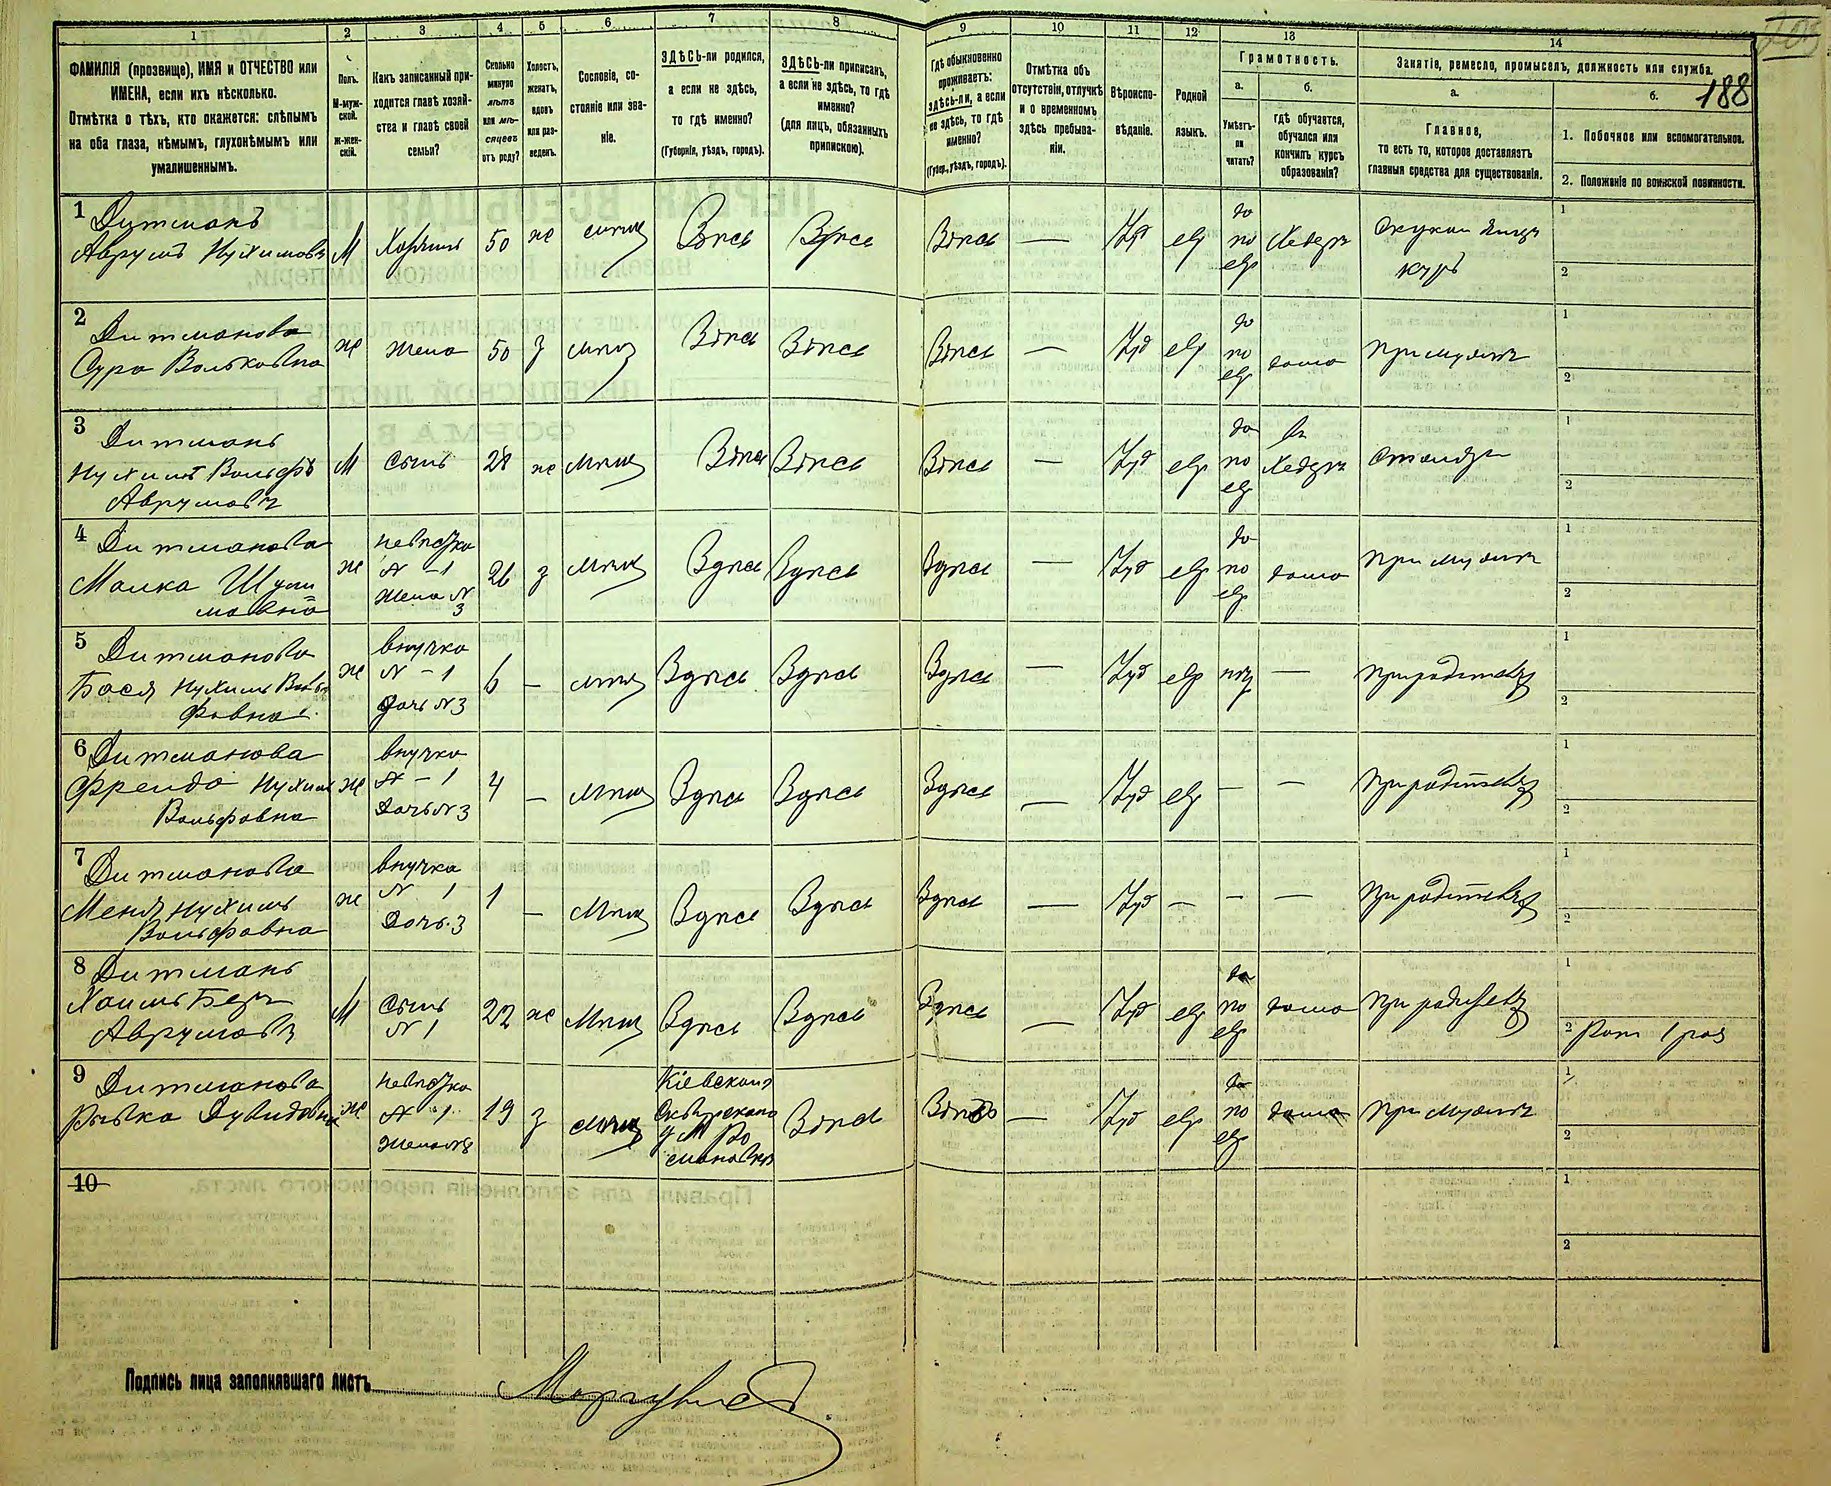 188
1 2 3 4 5 6 7 8 9 10 11 12 13 14
ФАМИЛІЯ (прозвище), ИМЯ и ОТЧЕСТВО или
ИМЕНА, если ихъ нѣсколько.
Отмѣтка о тѣхъ, кто окажется: слѣпымъ
на оба глаза, нѣмымъ, глухонѣмымъ или
умалишеннымъ.
Полъ.
М-муж-
ской.
Ж-жен-
скій.
Какъ записанный при-
ходится главѣ хозяй-
ства и главѣ своей
семьи?
Сколько
минуло
лѣтъ
или мѣ-
сяцевъ
отъ роду?
Холостъ,
женатъ,
вдовъ
или раз-
веденъ.
Сословіе, со-
стояніе или зва-
ніе.
ЗДѢСЬ-ли родился,
а если не здѣсь,
то гдѣ именно?
(Губернія, уѣздъ, городъ).
ЗДѢСЬ-ли приписанъ,
а если не здѣсь, то гдѣ
именно?
(для лицъ, обязанныхъ
припискою).
Гдѣ обыкновенно
проживаетъ:
здѣсь-ли, а если
не здѣсь, то гдѣ
именно?
(Губер., уѣздъ, городъ).
Отмѣтка объ
отсутствіи, отлучкѣ
и о временномъ
здѣсь пребыва-
ніи.
Вѣроиспо-
вѣданіе.
Родной
языкъ.
Грамотность.
а.
Умѣетъ-
ли
читать?
б.
гдѣ обучается,
обучался или
кончилъ курсъ
образованія?
Занятіе, ремесло, промыселъ, должность или служба.
а.
Главное,
то есть то, которое доставляетъ
главныя средства для существованія.
б.
1. Побочное или вспомогательное.
2. Положеніе по воинской повинности.
1 Дитманъ
Аврумъ Нухимовъ М Хозяинъ 50 же Здѣсь Здѣсь Здѣсь — Іуд евр да
по
евр Хедеръ
1
2
2 Дитманова
Сура Вольковна Ж Жена 50 з мѣщ Здѣсь Здѣсь Здѣсь — Іуд евр да
по
евр дома При мужѣ
1
2
3 Дитманъ
Нухимъ Вольфъ
Аврумовъ М Сынъ 28 же мѣщ Здѣсь Здѣсь Здѣсь — Іуд евр да
по
евр въ
Хедеръ Столяръ
1
2
4 Дитманова
Малка Шули
мовна Ж невѣстка
N – 1
Жена N
3 26 з мѣщ Здѣсь Здѣсь Здѣсь — Іуд евр да
по
евр дома При мужѣ
1
2
5 Дитманова
Бася Нухимъ Воль
фовна Ж внучка
N – 1
дочь N 3 6 — мѣщ Здѣсь Здѣсь Здѣсь — Іуд евр нѣтъ — При родителях
1
2
6 Дитманова
Фрейда Нухим
Вольфовна Ж внучка
N – 1
Дочь N 3 4 — мѣщ Здѣсь Здѣсь Здѣсь — Іуд евр — — При родителях
1
2
7 Дитманова
Меня Нухимъ
Вольфовна Ж внучка
N 1
Дочь 3 1 — Мѣщ Здѣсь Здѣсь Здѣсь — Іуд — — — При родителях
1
2
8 Дитманъ
Хаимъ Беръ
Аврумовъ М Сынъ
N 1 22 же Мѣщ Здѣсь Здѣсь Здѣсь — Іуд евр да
по
евр дома При родителях
1
2 Рат 1 раз
9 Дитманова
Рывка Дувидовна Ж невѣстка
N 1
Жена N 8 19 з мѣщ Кіевской
Сквирскаго
у М Ро
мановка Здѣсь Здѣсь — Іуд евр да
по
евр дома При мужѣ
1
2
10
1
2
Подпись лица заполнявшаго листъ